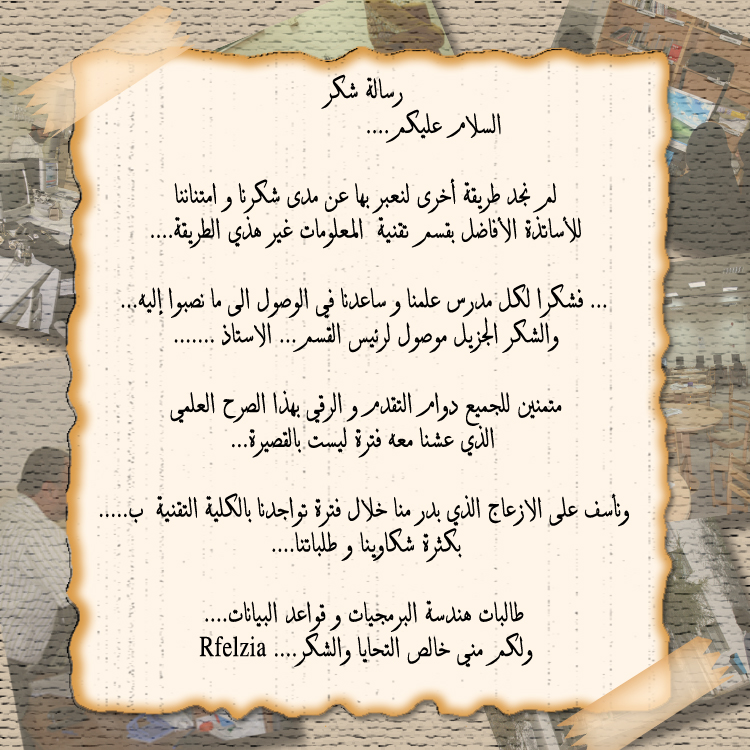 رسالة شكر
السلام عليكم....
لم نجد طريقة أخرى لنعبر بها عن مدى شكرنا و امتناننا
للأساتذة الأفاضل بقسم تقنية المعلومات غير هذي الطريقة....
... فشكرا لكل مدرس علمنا و ساعدنا في الوصول الى ما نصبوا إليه...
والشكر الجزيل موصول لرئيس القسم... الاستاذ .......
متمنين للجميع دوام التقدم و الرقي بهذا الصرح العلمي
الذي عشنا معه فترة ليست بالقصيرة...
ونأسف على الازعاج الذي بدر منا خلال فترة تواجدنا بالكلية التقنية ب.....
بكثرة شكاوينا و طلباتنا....
طالبات هندسة البرمجيات و قواعد البيانات....
ولكم مني خالص التحايا والشكر.... Rfelzia